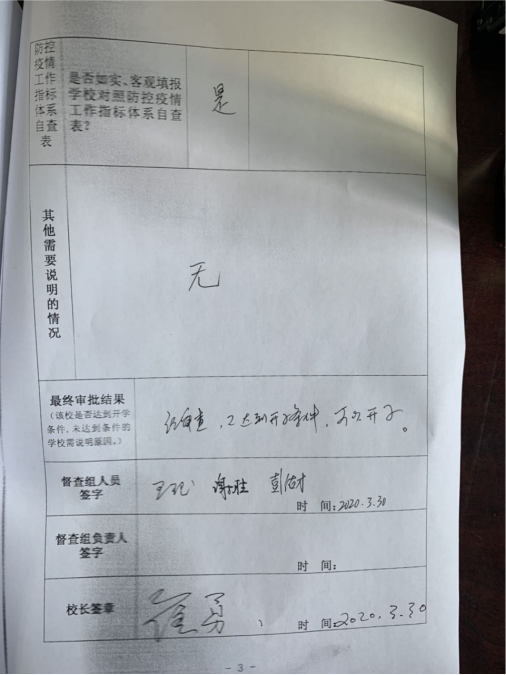 防控
疫情
工作
指标
体系
自查
表
是否如实、客观填报
学校对照防控疫情
工作指标体系自查
表?
是
其他需要说明的情况
无
最终审批结果
(该校是否达到开学
条件,未达到条件的
学校需说明原因。)
经自查,已达到开学条件,可以开学。
督查组人员
签字
时 间:2020.3.30
督查组负责人
签字
时 间:
校长签章
徐勇
时 间:2020.3.30
- 3 -